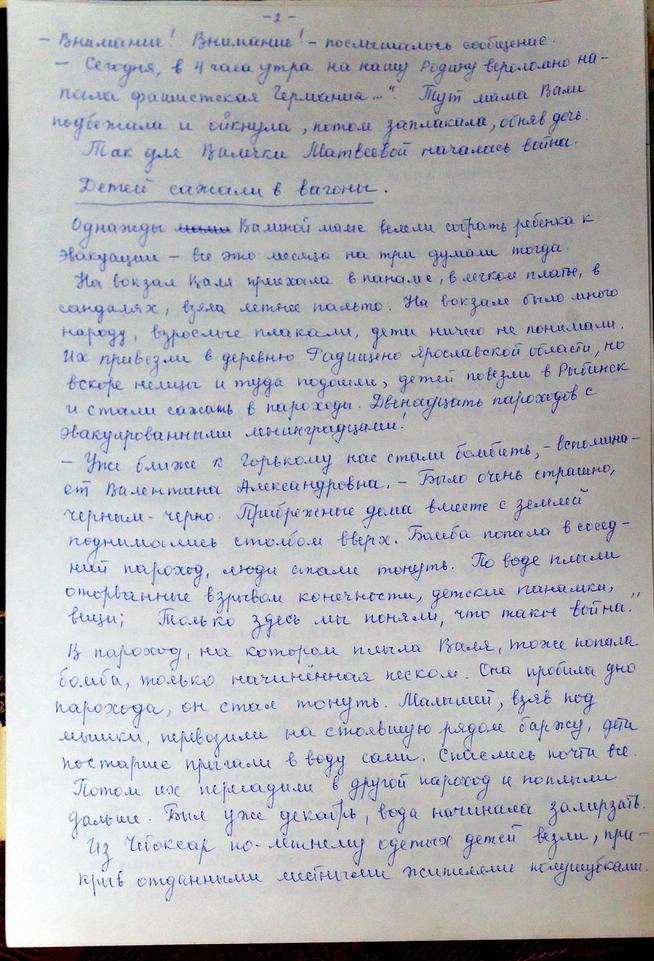 -2-
- Внимание! Внимание! - послышалось сообщение.
- Сегодня, в 4 часа утра на нашу Родину вероломно на-
пала фашистская Германия..." Тут мама Вали
подбежала и ойкнула, потом заплакала, обняв дочь.
Так для Валечки Матвеевой началась война.
Детей сажали в вагоны.
Однажды мама Валиной маме велели собрать ребенка к
эвакуации - все это месяца на три думали тогда.
На вокзал Валя приехала в панаме, в легком платье, в
сандалях, взяла летнее пальто. На вокзале было много
народу, взрослые плакали, дети ничего не понимали.
Их привезли в деревню Радищено Ярославской области, но
вскоре немцы и туда подошли, детей повезли в Рыбинск
и стали сажать в пароходы. Двенадцать пароходов с
эвакуированными ленинградцами!
- Уже ближе к Горькому нас стали бомбить, - вспомина-
ет Валентина Александровна. - Было очень страшно,
черным-черно. Прибрежные дома вместе с землей
поднимались столбом вверх. Бомба попала в сосед-
ний пароход, люди стали тонуть. По воде плыли
оторванные взрывом конечности, детские панамки,
вещи; Только здесь мы поняли, что такое война."
В пароход, на котором плыла Валя, тоже попала
бомба, только начинённая песком. Она пробила дно
парохода, он стал тонуть. Малышей, взяв под
мышки, перевозили на стоявшую рядом баржу, дети
постарше прыгали в воду сами. Спаслись почти все.
Потом их пересадили в другой пароход и поплыли
дальше. Был уже декабрь, вода начинала замерзать.
Из Чебоксар по-летнему одетых детей везли, при-
крыв отданными местными жителями полушубками.